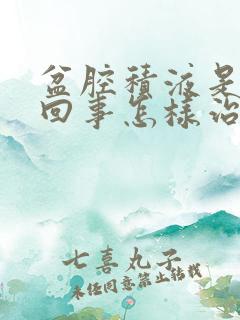 盆腔積液是
回事怎樣治
七喜丸子
未经同意禁止转载